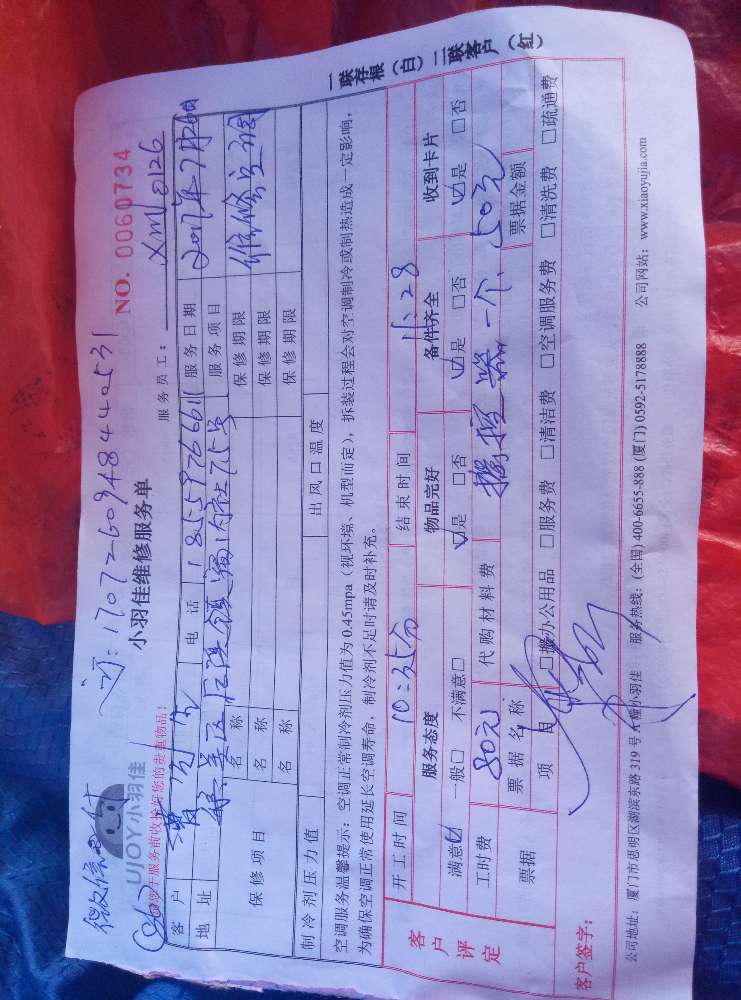 微信支付
订:170726094844002531
UIOY小羽佳
小羽佳维修服务单
NO. 0060734
请您于服务前收拾好您的贵重物品!
服务员工: XM10126
客户 电话 18559766611 服务日期 2017年7月26日
地址 集美区后溪镇 75号 服务项目 维修空调
保修项目 名称 保修期限
名称 保修期限
名称 保修期限
制冷剂压力值 出风口温度
空调服务温馨提示:空调正常制冷剂压力值为0.45mpa(视环境、机型而定),拆装过程会对空调制冷或制热造成一定影响,
为确保空调正常使用延长空调寿命,制冷剂不足时请及时补充。
开工时间 10:25分 结束时间 11:28
客户评定 服务态度 物品完好 备件齐全 收到卡片
满意☑ 一般□ 不满意□ ☑是 □否 ☑是 □否 ☑是 □否
工时费 80元 代购材料费 遥控器一个、50元
票据 票据名称 票据金额
项目 □办公用品 □服务费 □清洁费 □空调服务费 □清洗费 □疏通费
客户签字:
公司地址:厦门市思明区湖滨东路319号A幢小羽佳 服务热线:(全国)400-6655-888 (厦门)0592-5178888 公司网站:www.xiaoyujia.com
一联存根(白)二联客户(红)